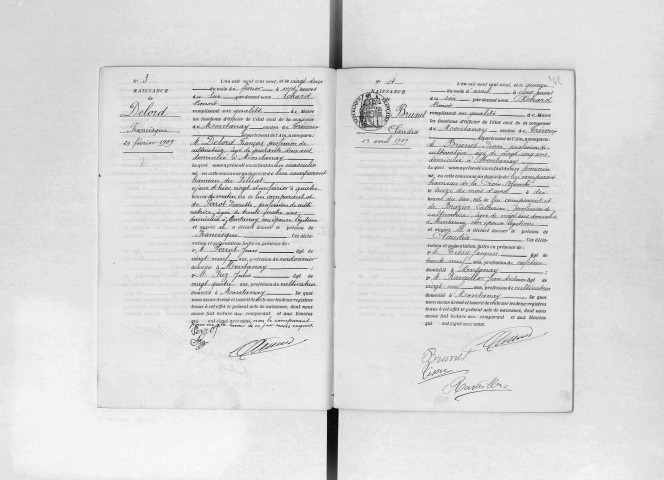 N° 3
NAISSANCE
de
Delord
Francisque
21 février 1909
L'an mil neuf cent neuf, et le vingt deux
du mois de février, à sept heures
du soir par devant nous Richard
Benoit
remplissant en qualité de Maire
les fonctions d'officier de l'état civil de la commune
de Montanay canton de Trévoux
département de l'Ain, a comparu
M. Delord François profession de
cultivateur, âgé de quarante deux ans
domicilié à Montanay
Lequel nous a présenté un enfant du sexe masculin
né, en cette commune, au domicile de lui comparant
hameau de
hier, vingt un février à quatre
heures du matin de lui comparant et
de Perrot profession de culti-
vatrice, âgée de trente quatre ans
domiciliée à Montanay, son épouse légitime
et auquel il a déclaré donner le prénom de
Francisque Cette décla-
ration et présentation faites en présence de
M. Perrot Jean âgé de
vingt neuf ans, profession de cordonnier
à Montanay
M. Jules âgé de
vingt quatre ans, profession de cultivateur
domicilié à Montanay De quoi
nous avons dressé et inscrit de suite sur les deux registres
tenus à cet effet le présent acte de naissance, dont nous
avons fait lecture au comparant et aux témoins
qui ont signé avec nous, non le comparant
pour ne le savoir de ce par nous requis
Perrot
N° 4
NAISSANCE
de
Brunet
Claudia
13 avril 1909
L'an mil neuf cent neuf, et le quinze
du mois d'avril à cinq heures
du soir par devant nous Richard
Benoit
remplissant en qualité de Maire
les fonctions d'officier de l'état civil de la commune
de Montanay canton de Trévoux
département de l'Ain, a comparu
M. Brunet Jean profession de
cultivateur âgé de vingt cinq ans
domicilié à Montanay
Lequel nous a présenté un enfant du sexe féminin
né, en cette commune, au domicile de lui comparant
hameau de la Croix Blanche
le treize du mois d'avril à dix
heures du soir, de lui comparant et
de Catherine, profession de
cultivatrice âgée de vingt ans domiciliée
à Montanay son épouse légitime
et auquel il a déclaré donner le prénom de
Claudia Cette décla-
ration et présentation faites en présence de
M. Jacques âgé de
trente neuf ans, profession de
domicilié à Montanay
M. Jean âgé de
vingt neuf ans, profession de cultivateur
domicilié à Montanay De quoi
nous avons dressé et inscrit de suite sur les deux registres
tenus à cet effet le présent acte de naissance, dont nous
avons fait lecture au comparant et aux témoins
qui ont signé avec nous.
Brunet